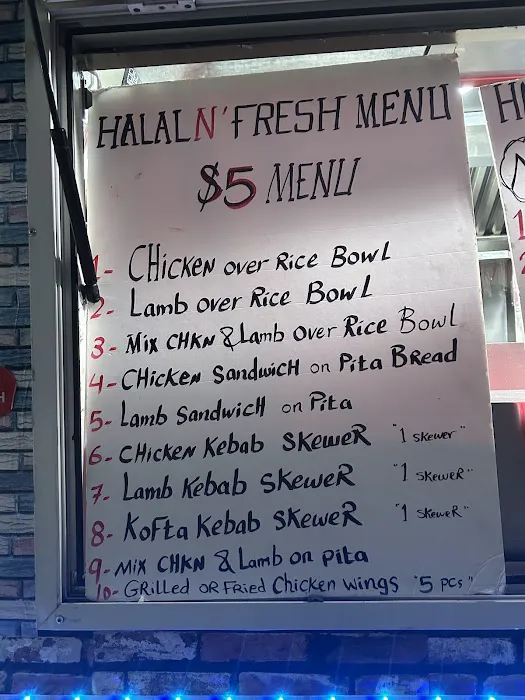 HALAL N' FRESH MENU
$5 MENU
1- CHicKEN oveR Rice BowL
2- Lamb oveR Rice BowL
3- Mix CHKN & Lamb oveR Rice Bowl
4- CHicKen SandwicH on Pita BRead
5- Lamb SandwicH on Pita
6- CHicKen Kebab SKeweR "1 SKewer"
7- Lamb Kebab SKeweR "1 SKeweR"
8- KoFta Kebab SKeweR "1 SKeweR"
9- Mix CHKN & Lamb on pita
10- GRilled OR FRied Chicken wings "5 pcs"